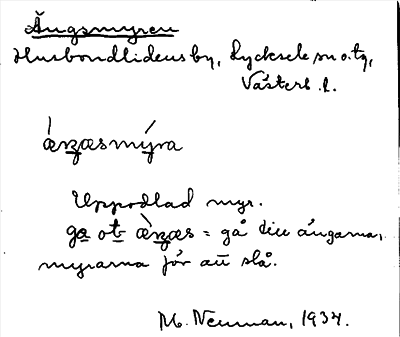 Ängsmyren
Husbondlidens by, Lycksele sn o. tg,
Västerb. l.
ǽŋæsmýra
Uppodlad myr.
ga ot æ̀ŋæs = gå till ängarna,
myrarna för att slå.
M. Neuman, 1934.